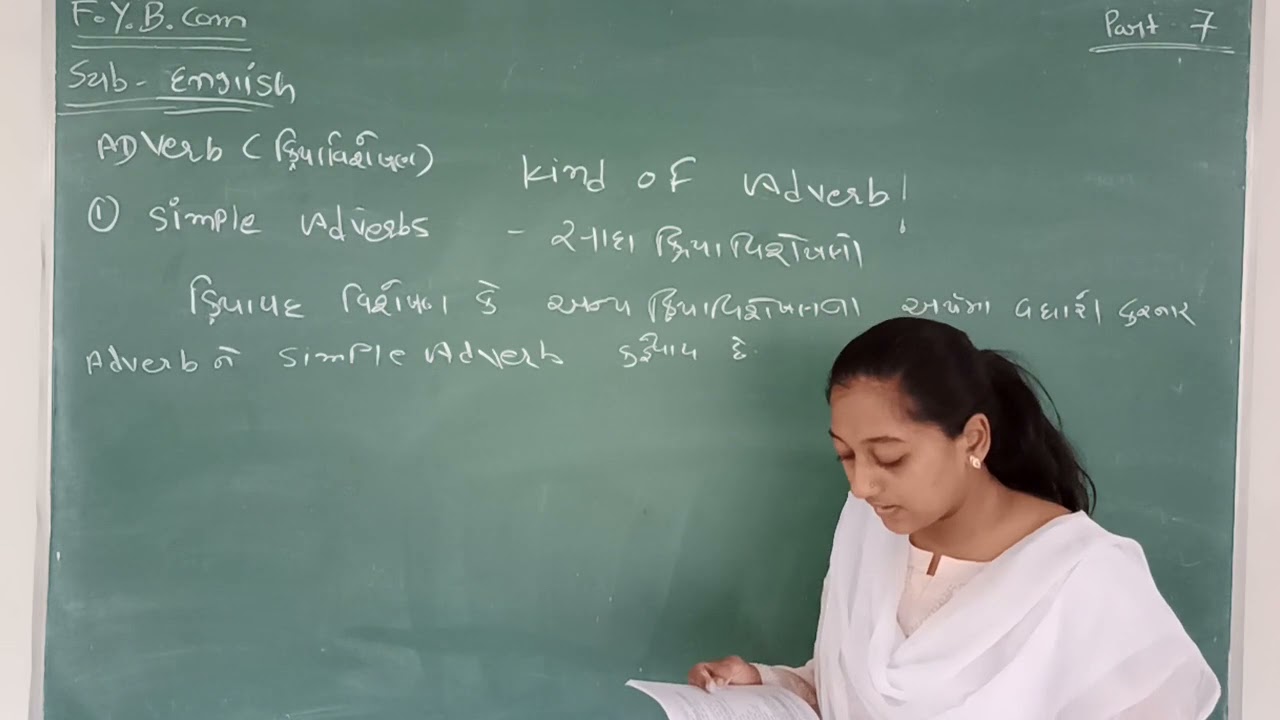 F.Y.B.Com
Part - 7
Sub - English
ADVerb (ક્રિયાવિશેષણ)
Kind of Adverb!
① Simple Adverbs - સાદા ક્રિયાવિશેષણો
ક્રિયાપદ વિશેષણ કે અન્ય ક્રિયાવિશેષણના અર્થમા વધારો કરનાર
Adverb ને Simple Adverb કહેવાય છે.